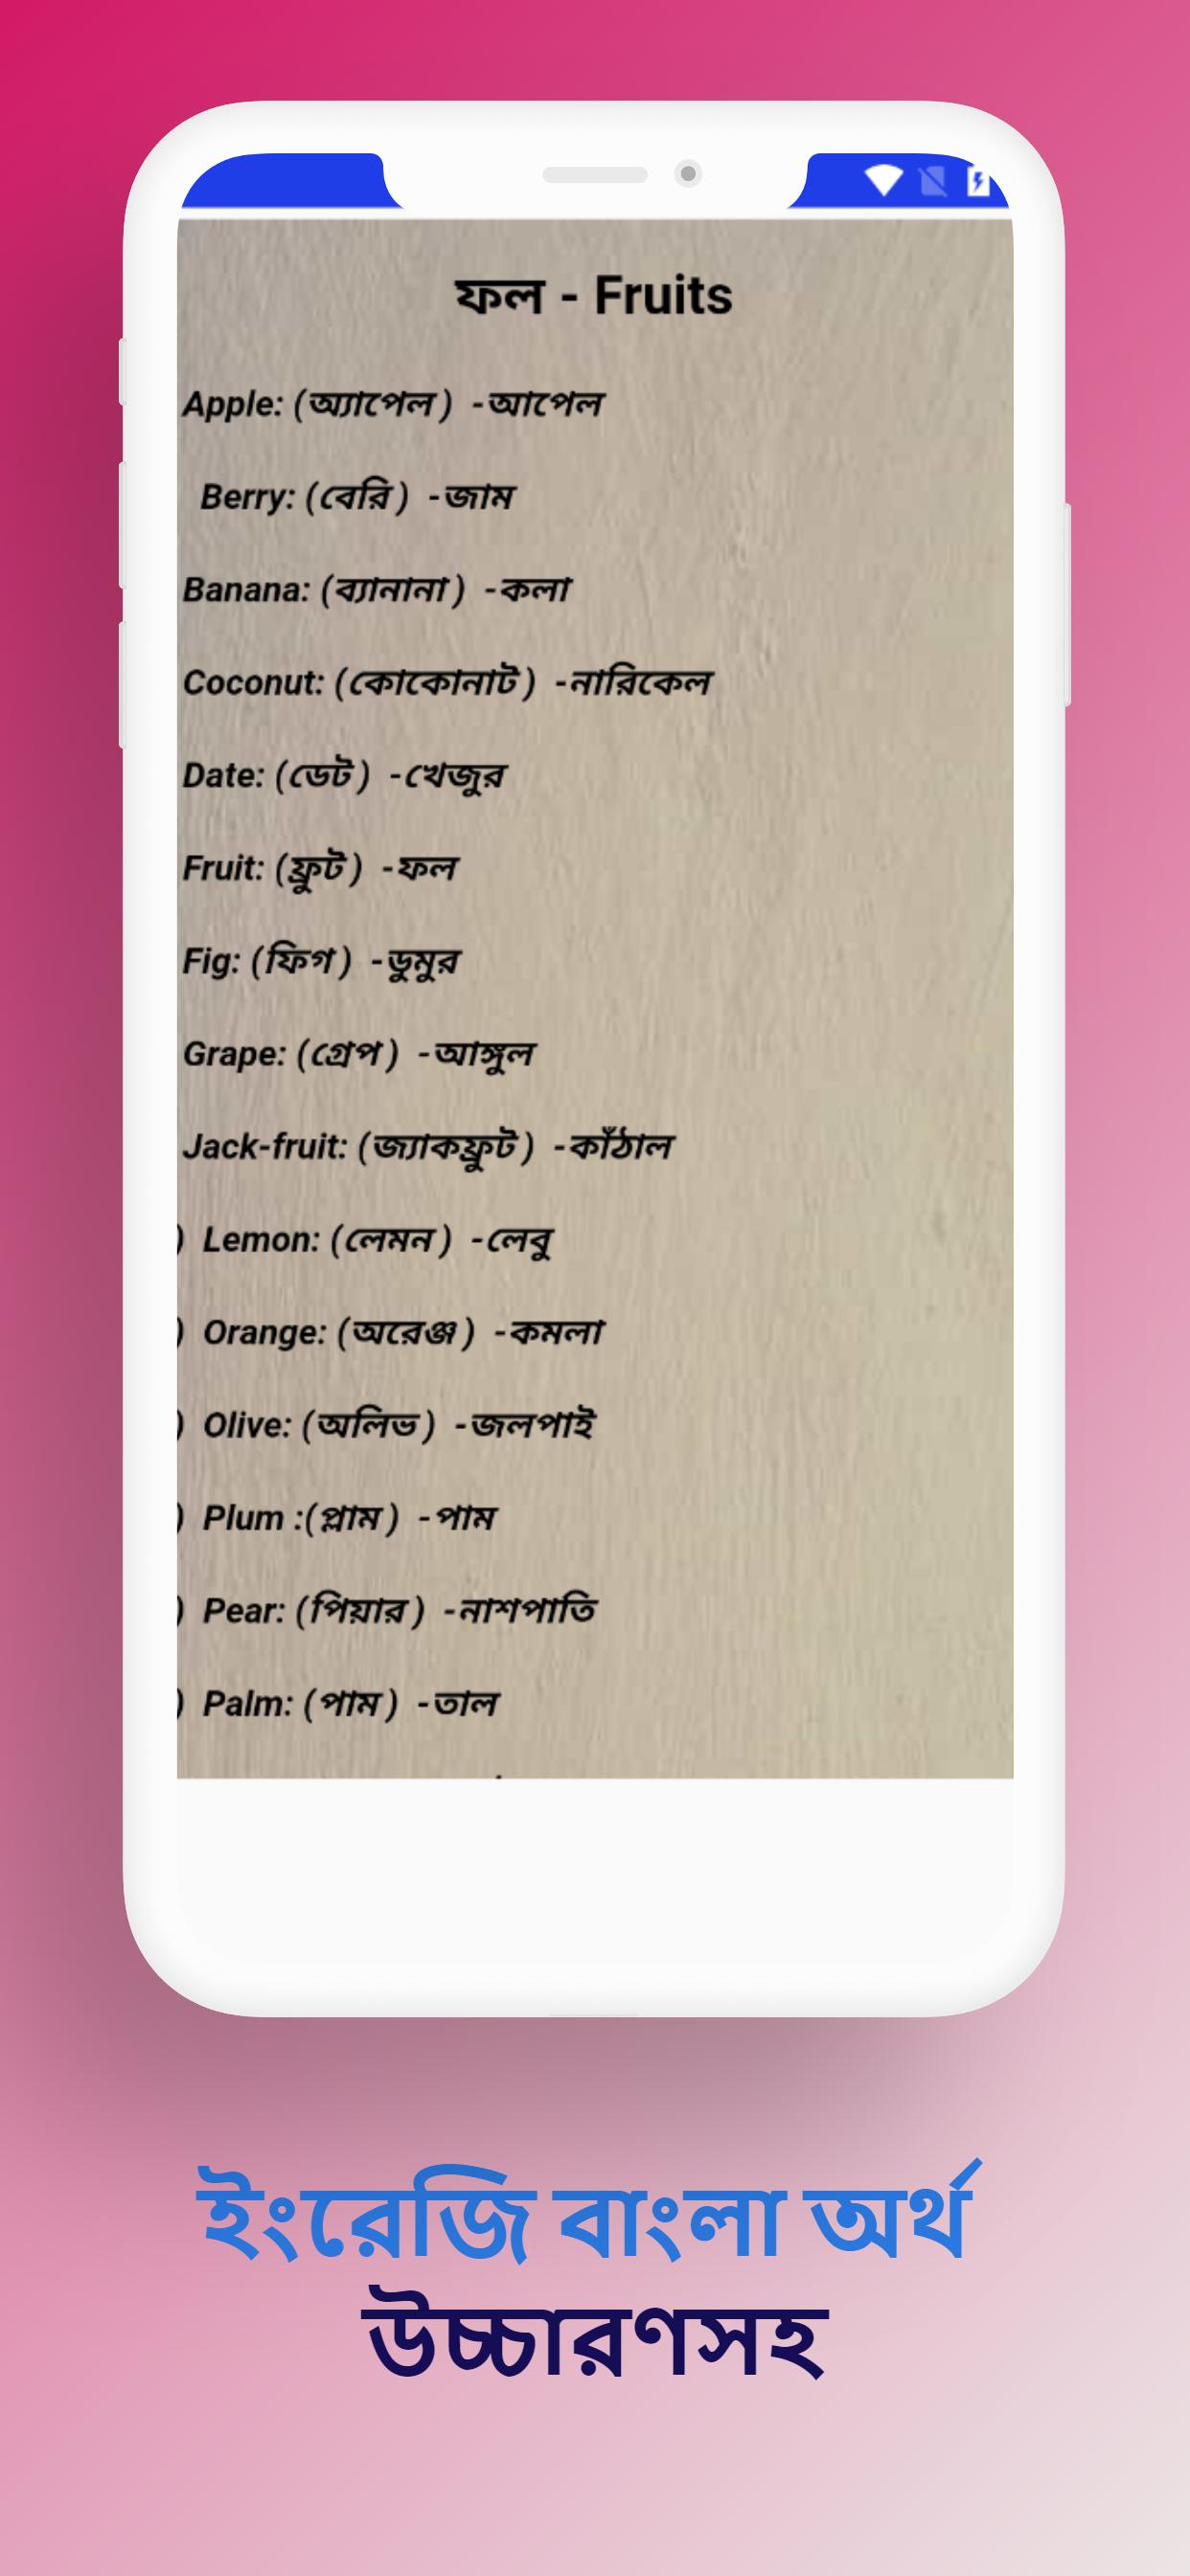 ফল - Fruits
Apple: (অ্যাপেল ) -আপেল
Berry: (বেরি ) -জাম
Banana: (ব্যানানা ) -কলা
Coconut: (কোকোনাট ) -নারিকেল
Date: (ডেট ) -খেজুর
Fruit: (ফ্রুট ) -ফল
Fig: (ফিগ ) -ডুমুর
Grape: (গ্রেপ ) -আঙ্গুল
Jack-fruit: (জ্যাকফ্রুট ) -কাঁঠাল
) Lemon: (লেমন ) -লেবু
) Orange: (অরেঞ্জ ) -কমলা
) Olive: (অলিভ ) -জলপাই
) Plum :(প্লাম ) -পাম
) Pear: (পিয়ার ) -নাশপাতি
) Palm: (পাম ) -তাল
ইংরেজি বাংলা অর্থ
উচ্চারণসহ